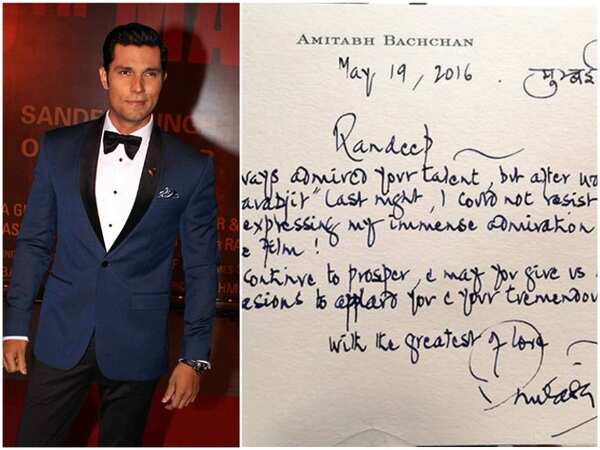 MA
SANDE
AMITABH BACHCHAN
May 19, 2016
मुम्बई
Randeep
ways admired your talent, but after wa
arabjit" last night, I could not resist
expressing my immense admiration
e film!
continue to prosper, & may you give us
asions to applaud you & your tremendou
with the greatest of love